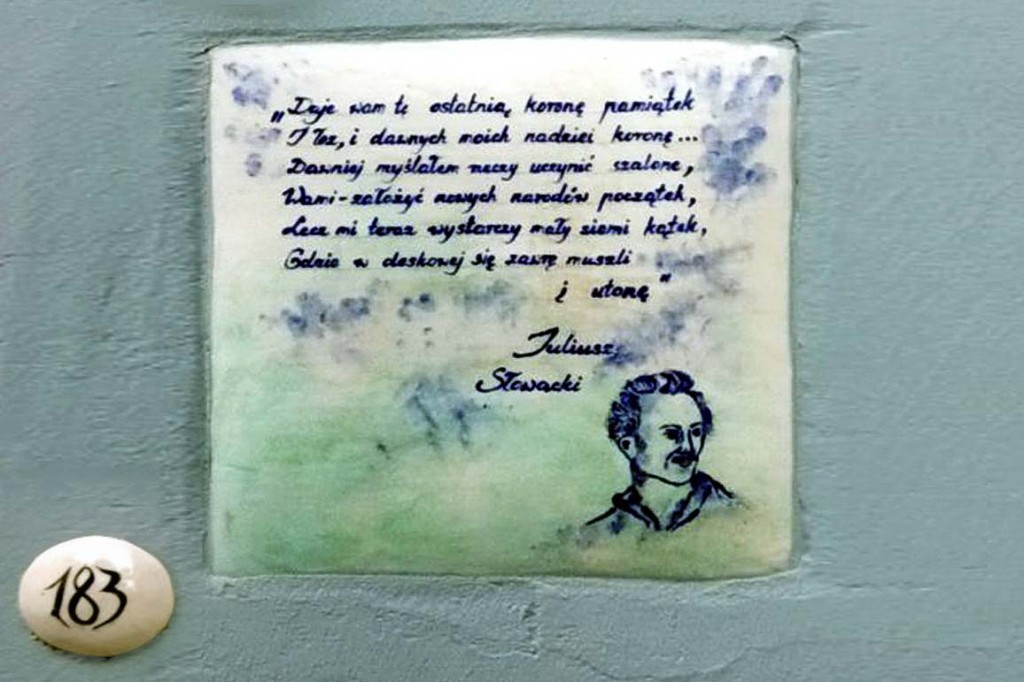 „Daję wam tę ostatnią koronę pamiątek
I łez, i dawnych moich nadziei koronę...
Dawniej myślałem rzeczy uczynić szalone,
Wami-założyć nowych narodów początek,
Lecz mi teraz wystarczy mały ziemi kątek,
Gdzie w deskowej się zawrę muszli
i utonę"
Juliusz
Słowacki
183